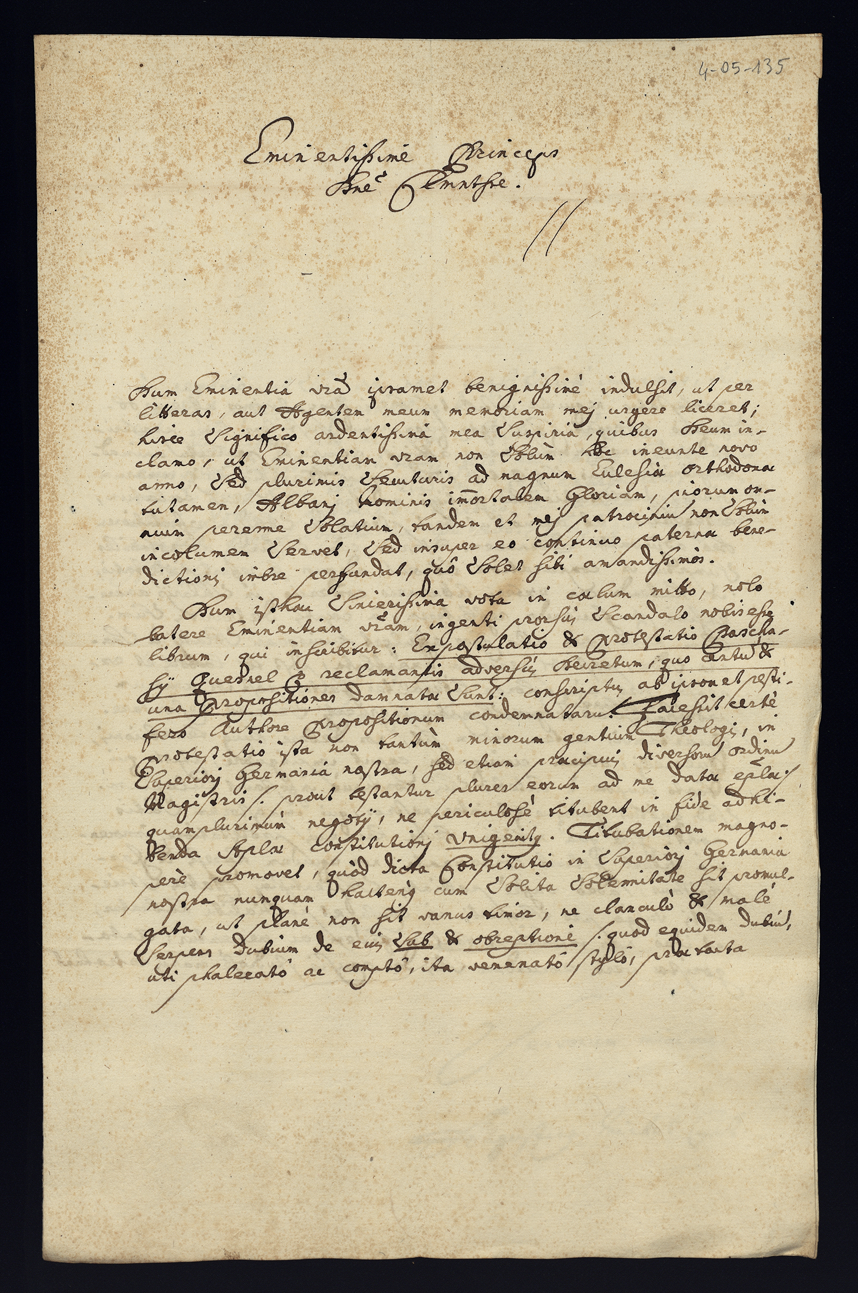 4-05-135
Eminentissimè Princeps
Dnè Clmntsse.
Dum Eminentia vrã ipsamet benignissimè indulsit, ut per
litteras, aut Agentem meum memoriam mej urgere liceret;
hisce significo ardentissima mea suspiria, quibus Deum in-
clamo, ut Eminentiam vram non solùm hoc ineunte novo
anno, sed plurimis secuturis ad magnum Eulesiæ orthodoxæ
tutamen, Albanj Nominis imõrtalem Gloriam, piorum om-
nium perenne solatium, tandem et mej patrociniũ non solùm
incolumem servet, sed insuper eo continuo paternæ bene-
dictionj imbre perfundat, quô solet sibi amandissimos.
Dum isthæc sincerissima vota in cœlum mitto, nolo
latere Eminentiam vr̃am, ingenti prorsus scandalo nobis esse
librum, qui inscribitur: Expostulatio & Protestatio Pascha-
sij Quesnel reclamantis adversus Decretum, quo centũ &
una Propositiones damnatæ sunt: conscriptus ab ipsomet pesti-
fero Authore Propositionum condemnatarũ. Facessit certè
Protestatio ista non tantùm minorum gentium Theologis, in
Superiorj Germania nostra, sed etiam præcipuis diversorũ ordinũ
Magistris /: prout testantur plures eorum ad me datæ eplæ :/
quamplurimùm negotij, ne periculosè titubent in fide adhi-
benda Aplæ Constitutionj Unigenitus. Titubationem magno-
perè promovet, quòd dicta Constitutio in Superiorj Germania
nostra nunquam hactenùs cum solita solemnitate sit promul-
gata, ut planè non sit vanus timor, ne clanculò & malè
serpens dubium de ejus sub & obreptionè /: quod equidem dubiũ,
uti phalerato ac compto, ita venenatô stylô, præ tacta